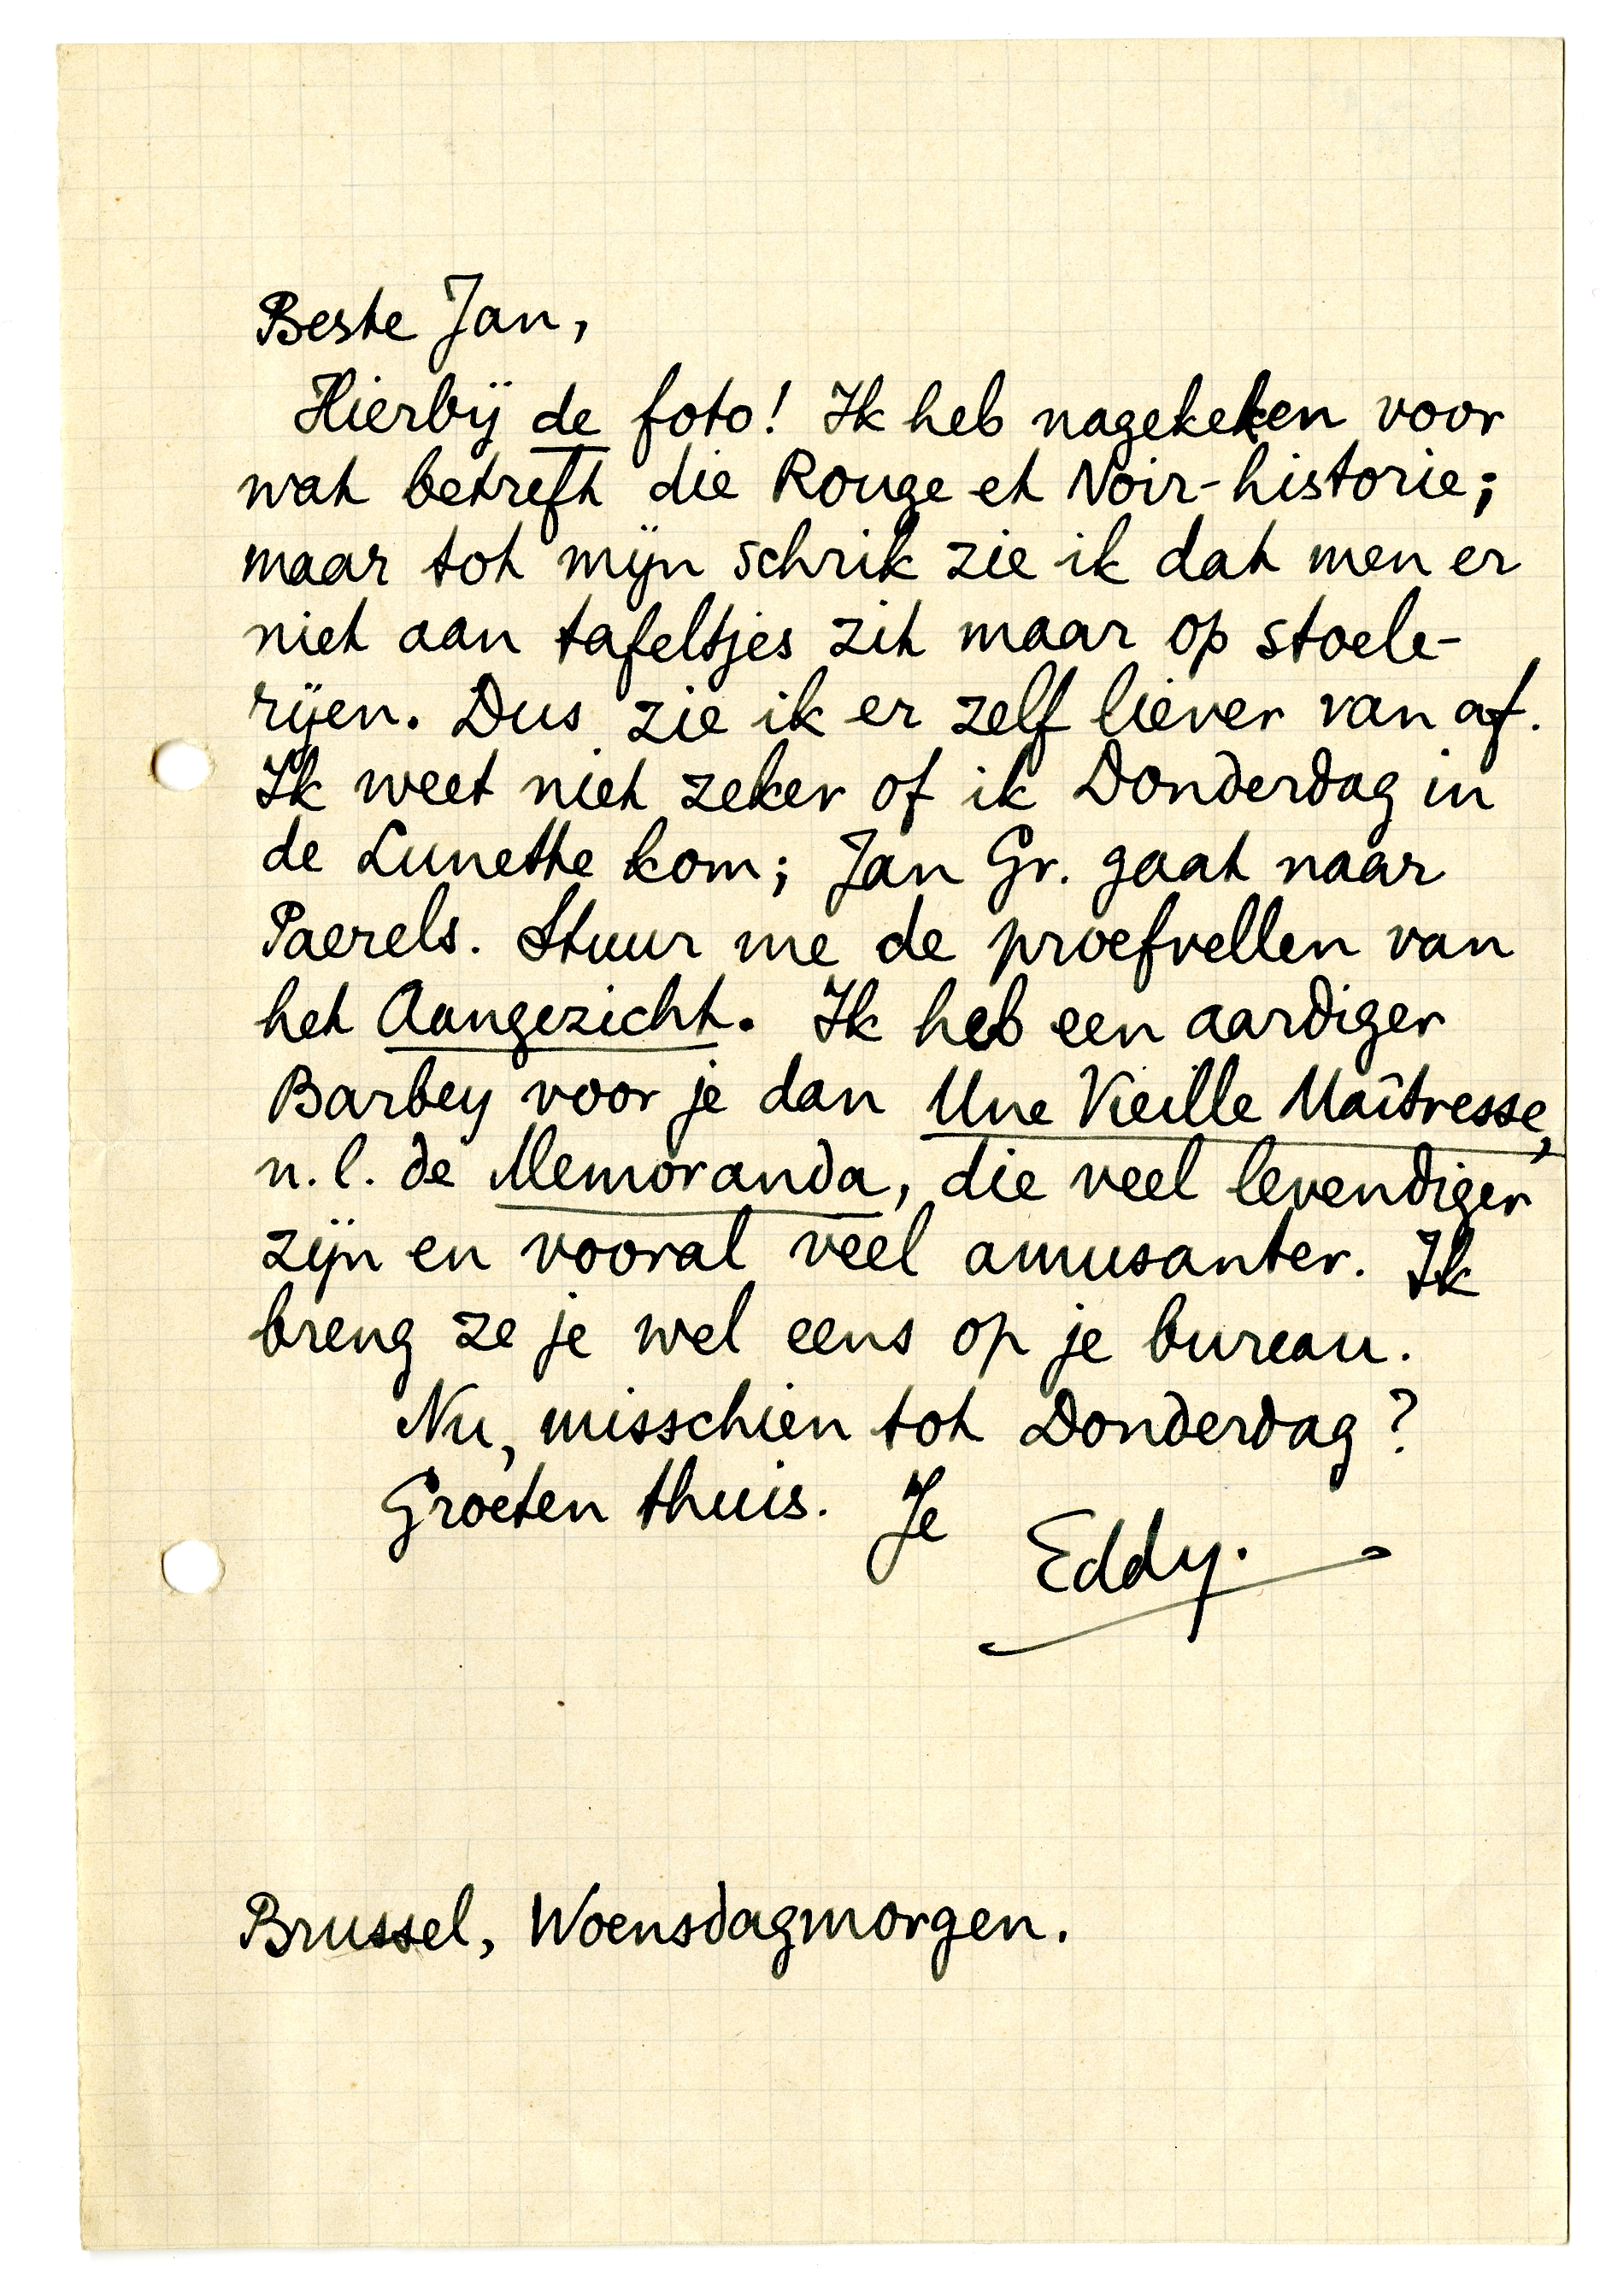 Beste Jan,
Hierbij de foto! Ik heb nagekeken voor
wat betreft die Rouge et Noir-historie;
maar tot mijn schrik zie ik dat men er
niet aan tafeltjes zit maar op stoele-
rijen. Dus zie ik er zelf liever van af.
Ik weet niet zeker of ik Donderdag in
de Lunette kom; Jan Gr. gaat naar
Paerels. Stuur me de proefvellen van
het Aangezicht. Ik heb een aardiger
Barbey voor je dan Une Vieille Maîtresse,
n.l. de Memoranda, die veel levendiger
zijn en vooral veel amusanter. Ik
breng ze je wel eens op je bureau.
Nu, misschien tot Donderdag?
Groeten thuis. Je
Eddy.
Brussel, Woensdagmorgen.